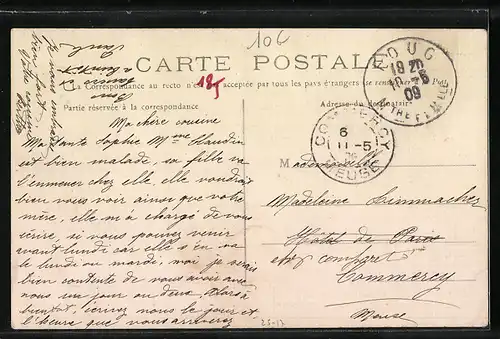 106
CARTE POSTALE
La Correspondance au recto n'est pas acceptée par tous les pays étrangers (se renseigner à la Poste)
185
Partie réservée à la correspondance
Adresse du destinataire
FOUG
19 20
10 - 5
09
MTHE ET MLLE
COMMERCY
6
11 - 5
MEUSE
Ma chère cousine
Ma tante Sophie Mme Claudin
est bien malade, sa fille va
l'emmener chez elle, elle voudrait
bien vous voir ainsi que votre
mère, elle m'a chargé de vous
écrire, si vous pouvez venir
avant lundi car elle s'en va
le lundi ou mardi, moi je serais
bien contente de vous avoir avec
nous un jour ou deux, Alors à
bientôt, écrivez nous le jour et
l'heure que vous arriverez
Je vous embrasse
bien fort
Votre cousine
Bons
baisers
à bientôt
Mademoiselle
Madeleine
Hôtel de Paris
Commercy
Meuse